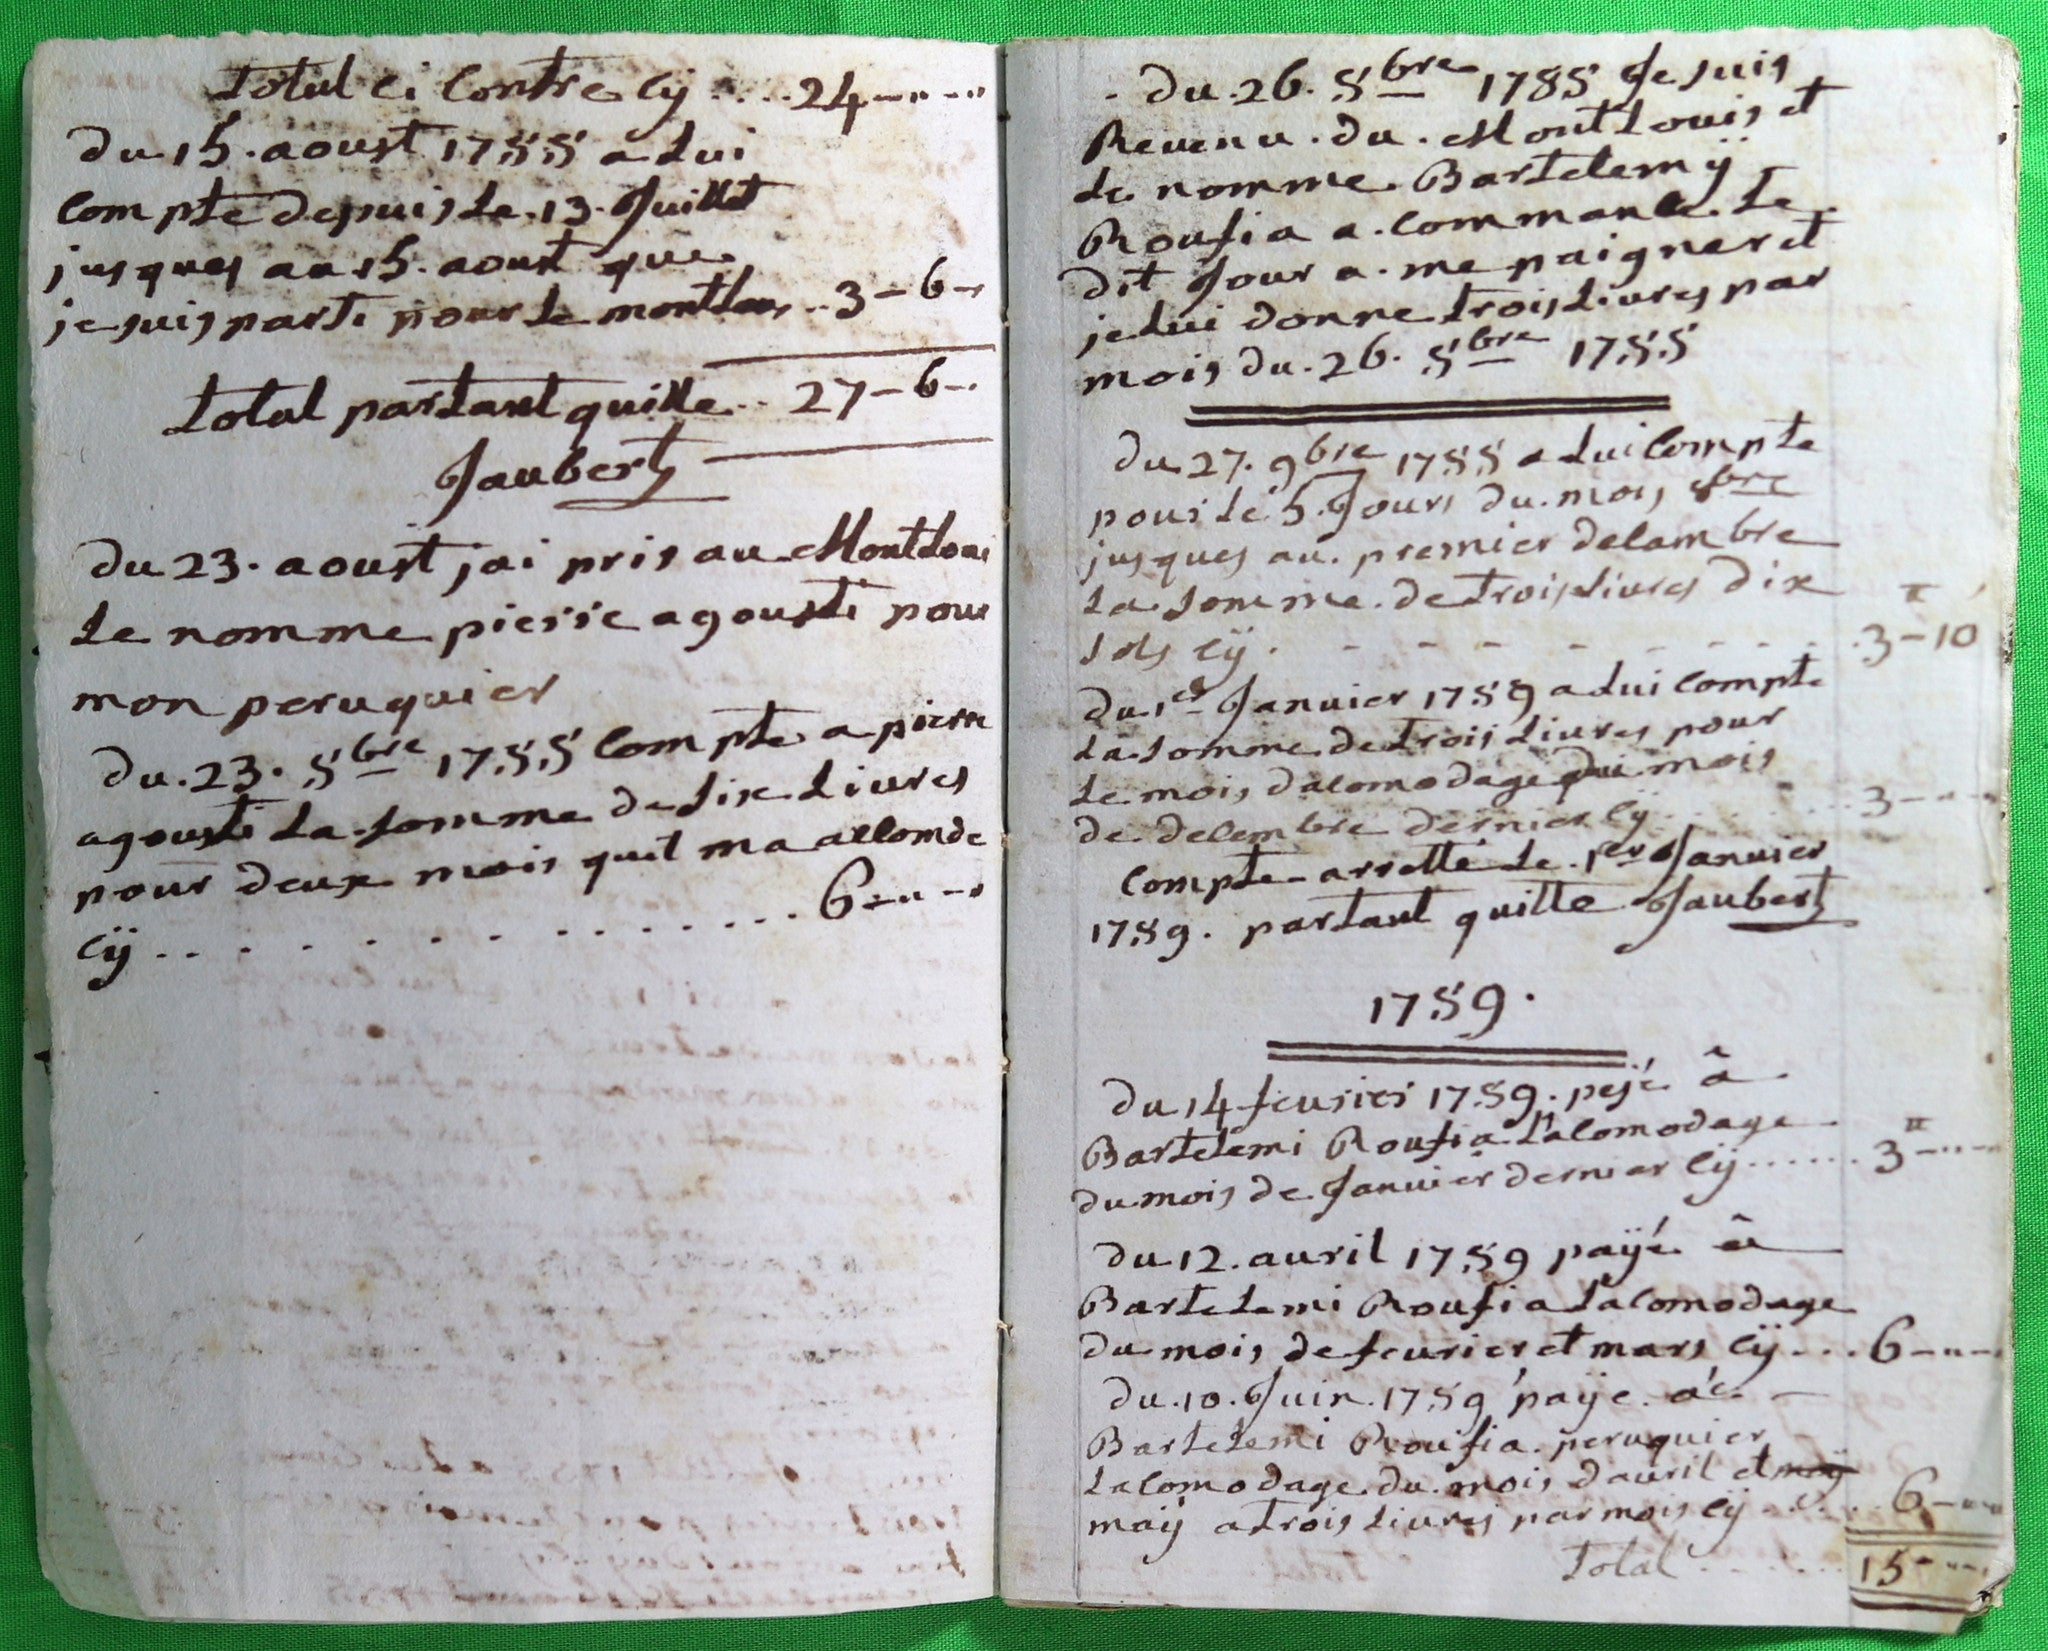 total ci contre cÿ .... 24 -"-"
du 15. aoust 1758 a lui
compte depuis le 13. Juillet
jusques au 15. aoust que
je suis parti pour le montlouis .. 3 - 6 -"
total partant quitte .. 27 - 6 -.
Jaubert
du 23. aoust jai pris au Montloui
le nomme pierre agousti pour
mon peruquier
du. 23. 8bre 1758 compte a pierre
agousti la somme de six livres
pour deux mois quil ma accomde
cÿ .............. 6 -"-"
. du. 26. 8bre 1758 Je suis
Revenu. du. Montlouis et
le nomme Bartelemÿ
Roufia a. commance. le.
dit Jour a. me paigner et
je lui donne trois livres par
mois du. 26. 8bre 1758
du 27. 9bre 1758 a lui compte
pour le 5. Jours du. mois 8bre
jusques au. premier decembre
la somme. de trois livres dix
sols cÿ . - - - - - - . 3 - 10
du 1er Janvier 1759 a lui compte
la somme de trois livres pour
le mois dacomodage du mois
de decembre dernier cÿ ..... 3 -"-"
compte arretté le. 1er Janvier
1759. partant quitte Jaubert
1759.
du 14 feurier 1759. peÿé â
Bartelemi Roufia Lacomodage
du mois de Janvier dernier cÿ ...... 3 -"-"
du 12. auril 1759 paÿé â
Bartelemi Roufia Lacomodage
du mois de feurier et mars cÿ ... 6 -"-"
du. 10. Juin. 1759 paÿe. á
Bartelemi Roufia. peruquier
Lacomodage. du. mois dauril et maÿ
maÿ a trois livres par mois cÿ ..... 6 -"-"
Total ....... 15 -"-"